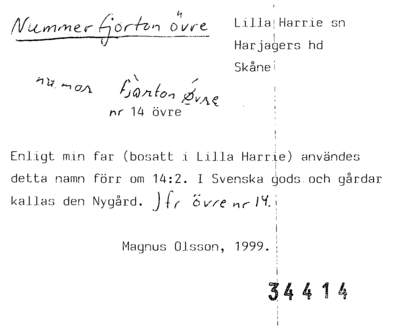 Nummer fjorton övre
Lilla Harrie sn
Harjagers hd
Skåne
fjòrton Øvre
nr 14 övre
Enligt min far (bosatt i Lilla Harrie) användes
detta namn förr om 14:2. I Svenska gods och gårdar
kallas den Nygård. Jfr övre nr 14.
Magnus Olsson, 1999.
34414